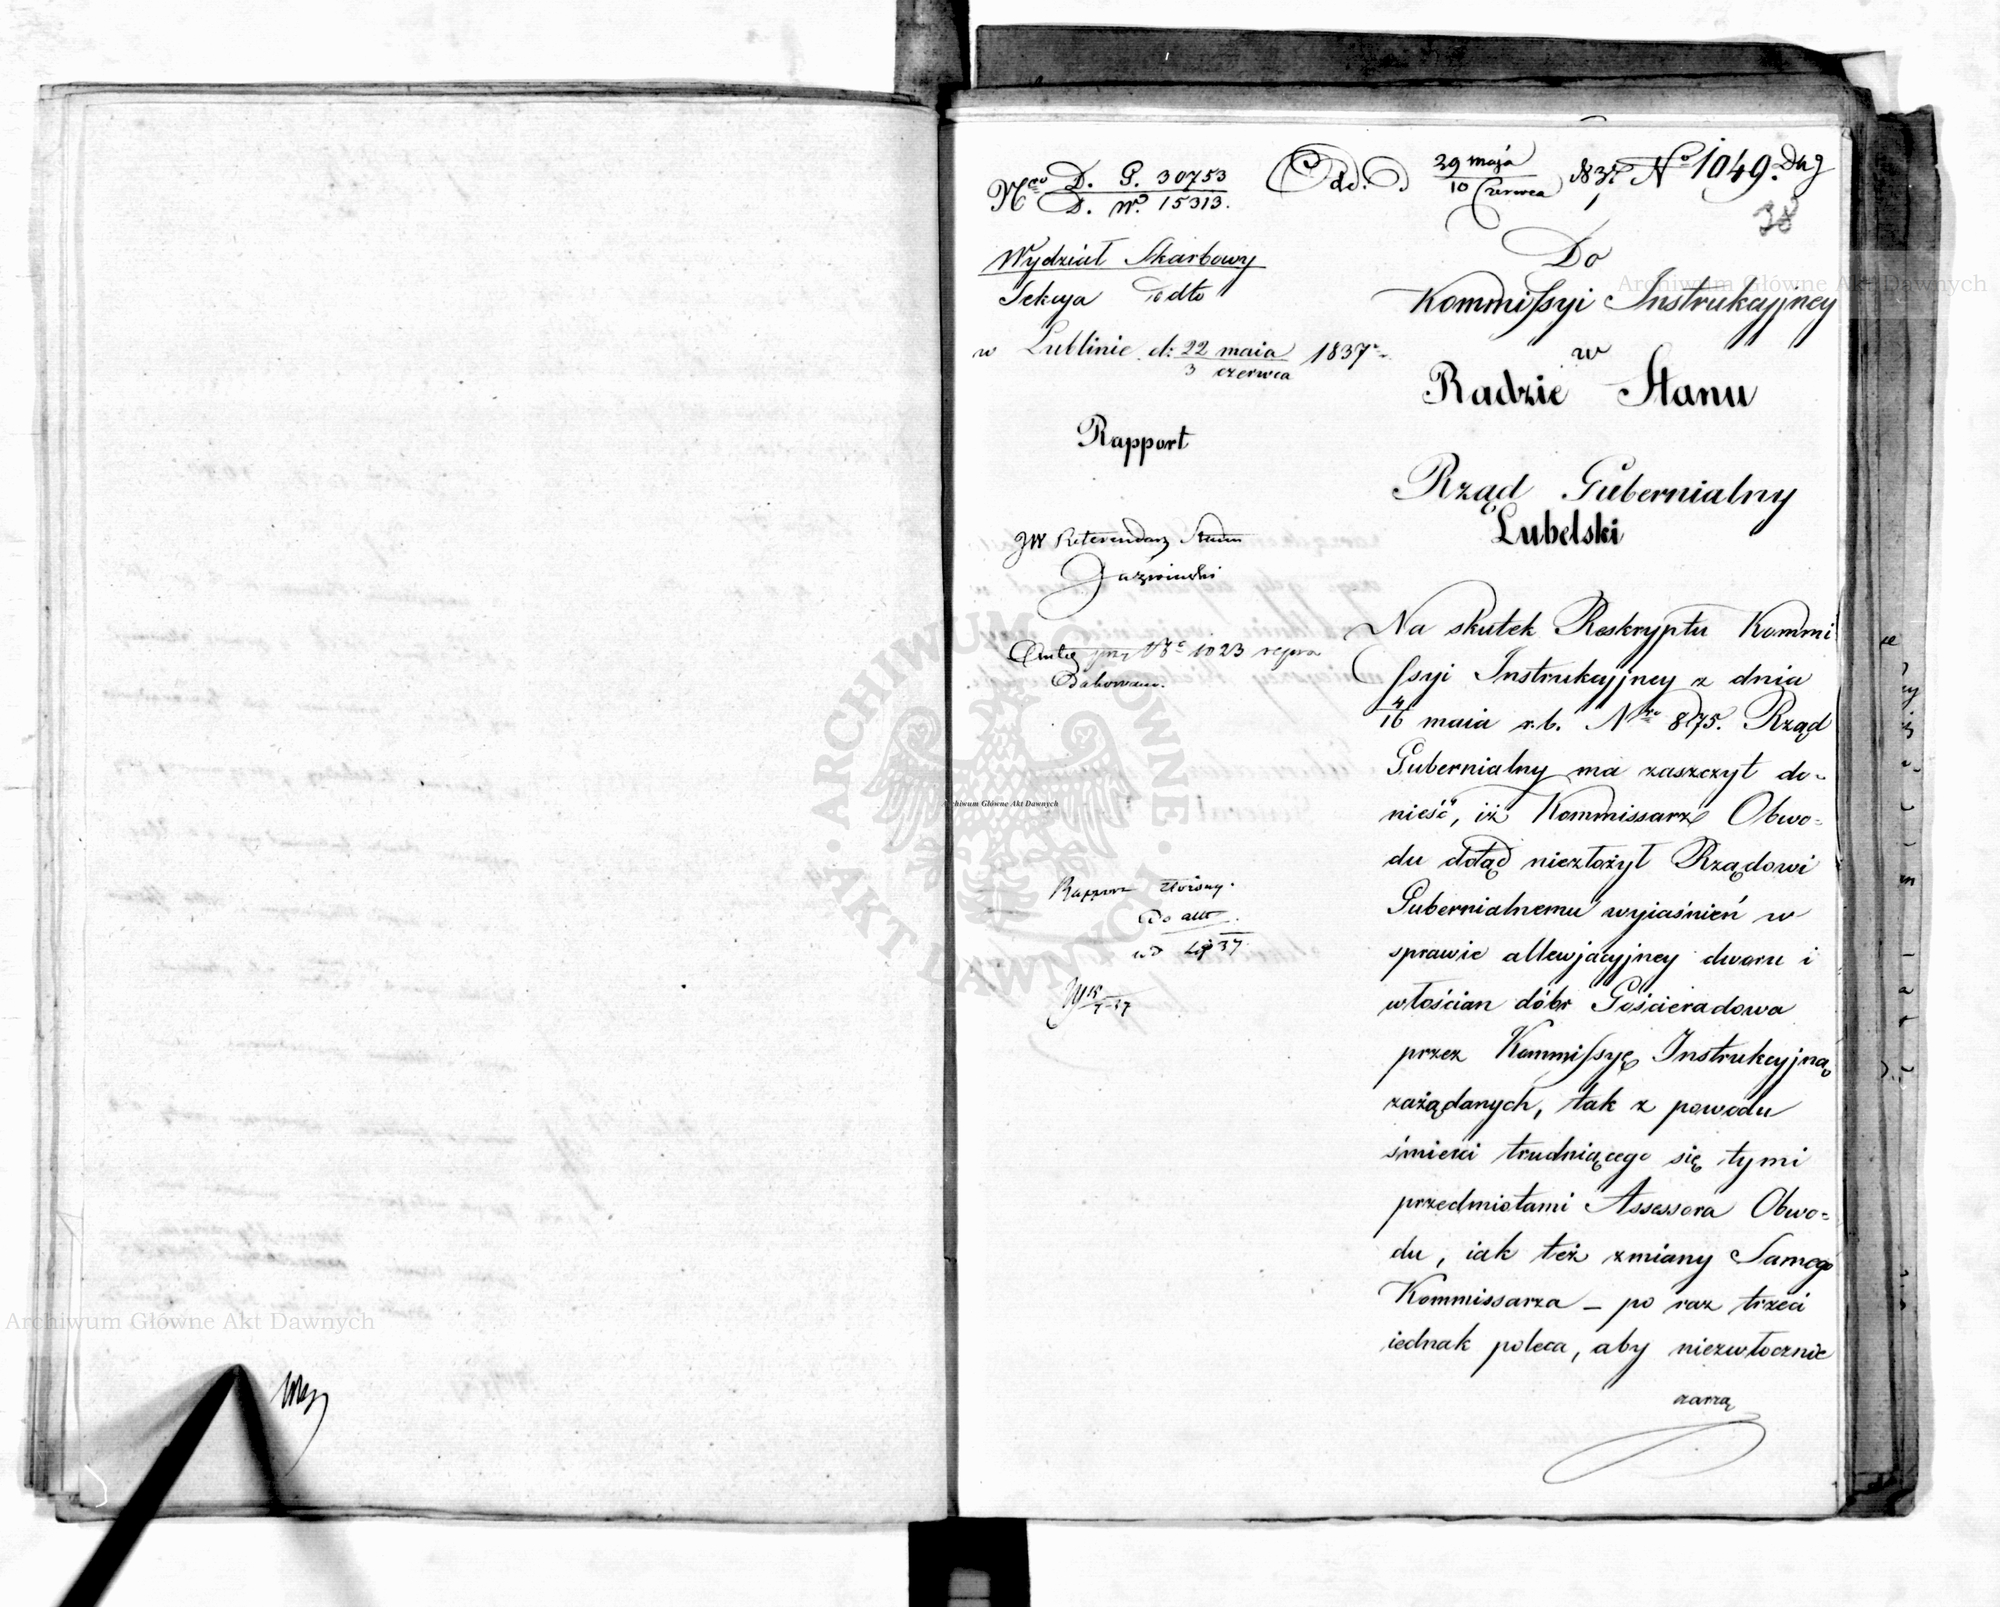 Nro D. G. 30753
D. W. 15313.
Wydział Skarbowy
Sekcya
w Lublinie d: 22 maia 1837 r.
3 czerwca
Rapport
JW Referendarz Stanu
No 1023
Rapport złożony.
Do akt
Odd. D. 29 maja 1837 No 1049. Dwg
10 Czerwca
38
Do
Kommissyi Instrukcyjney
w
Radzie Stanu
Rząd Gubernialny
Lubelski
Na skutek Reskryptu Kommi
ssyi Instrukcyjney z dnia
4/16 maia r. b. Nro 875. Rząd
Gubernialny ma zaszczyt do-
nieść, iż Kommissarz Obwo-
du dotąd niezłożył Rządowi
Gubernialnemu wyiaśnień w
sprawie allewjacyjney dworu i
włościan dóbr Gościeradowa
przez Kommissyę Instrukcyjną
zażądanych, tak z powodu
śmierci trudniącego się tymi
przedmiotami Assessora Obwo-
du, iak też zmiany Samego
Kommissarza – po raz trzeci
iednak poleca, aby niezwłocznie
zarzą
Archiwum Główne Akt Dawnych
Archiwum Główne Akt Dawnych
Archiwum Główne Akt Dawnych
ARCHIWUM GŁÓWNE AKT DAWNYCH